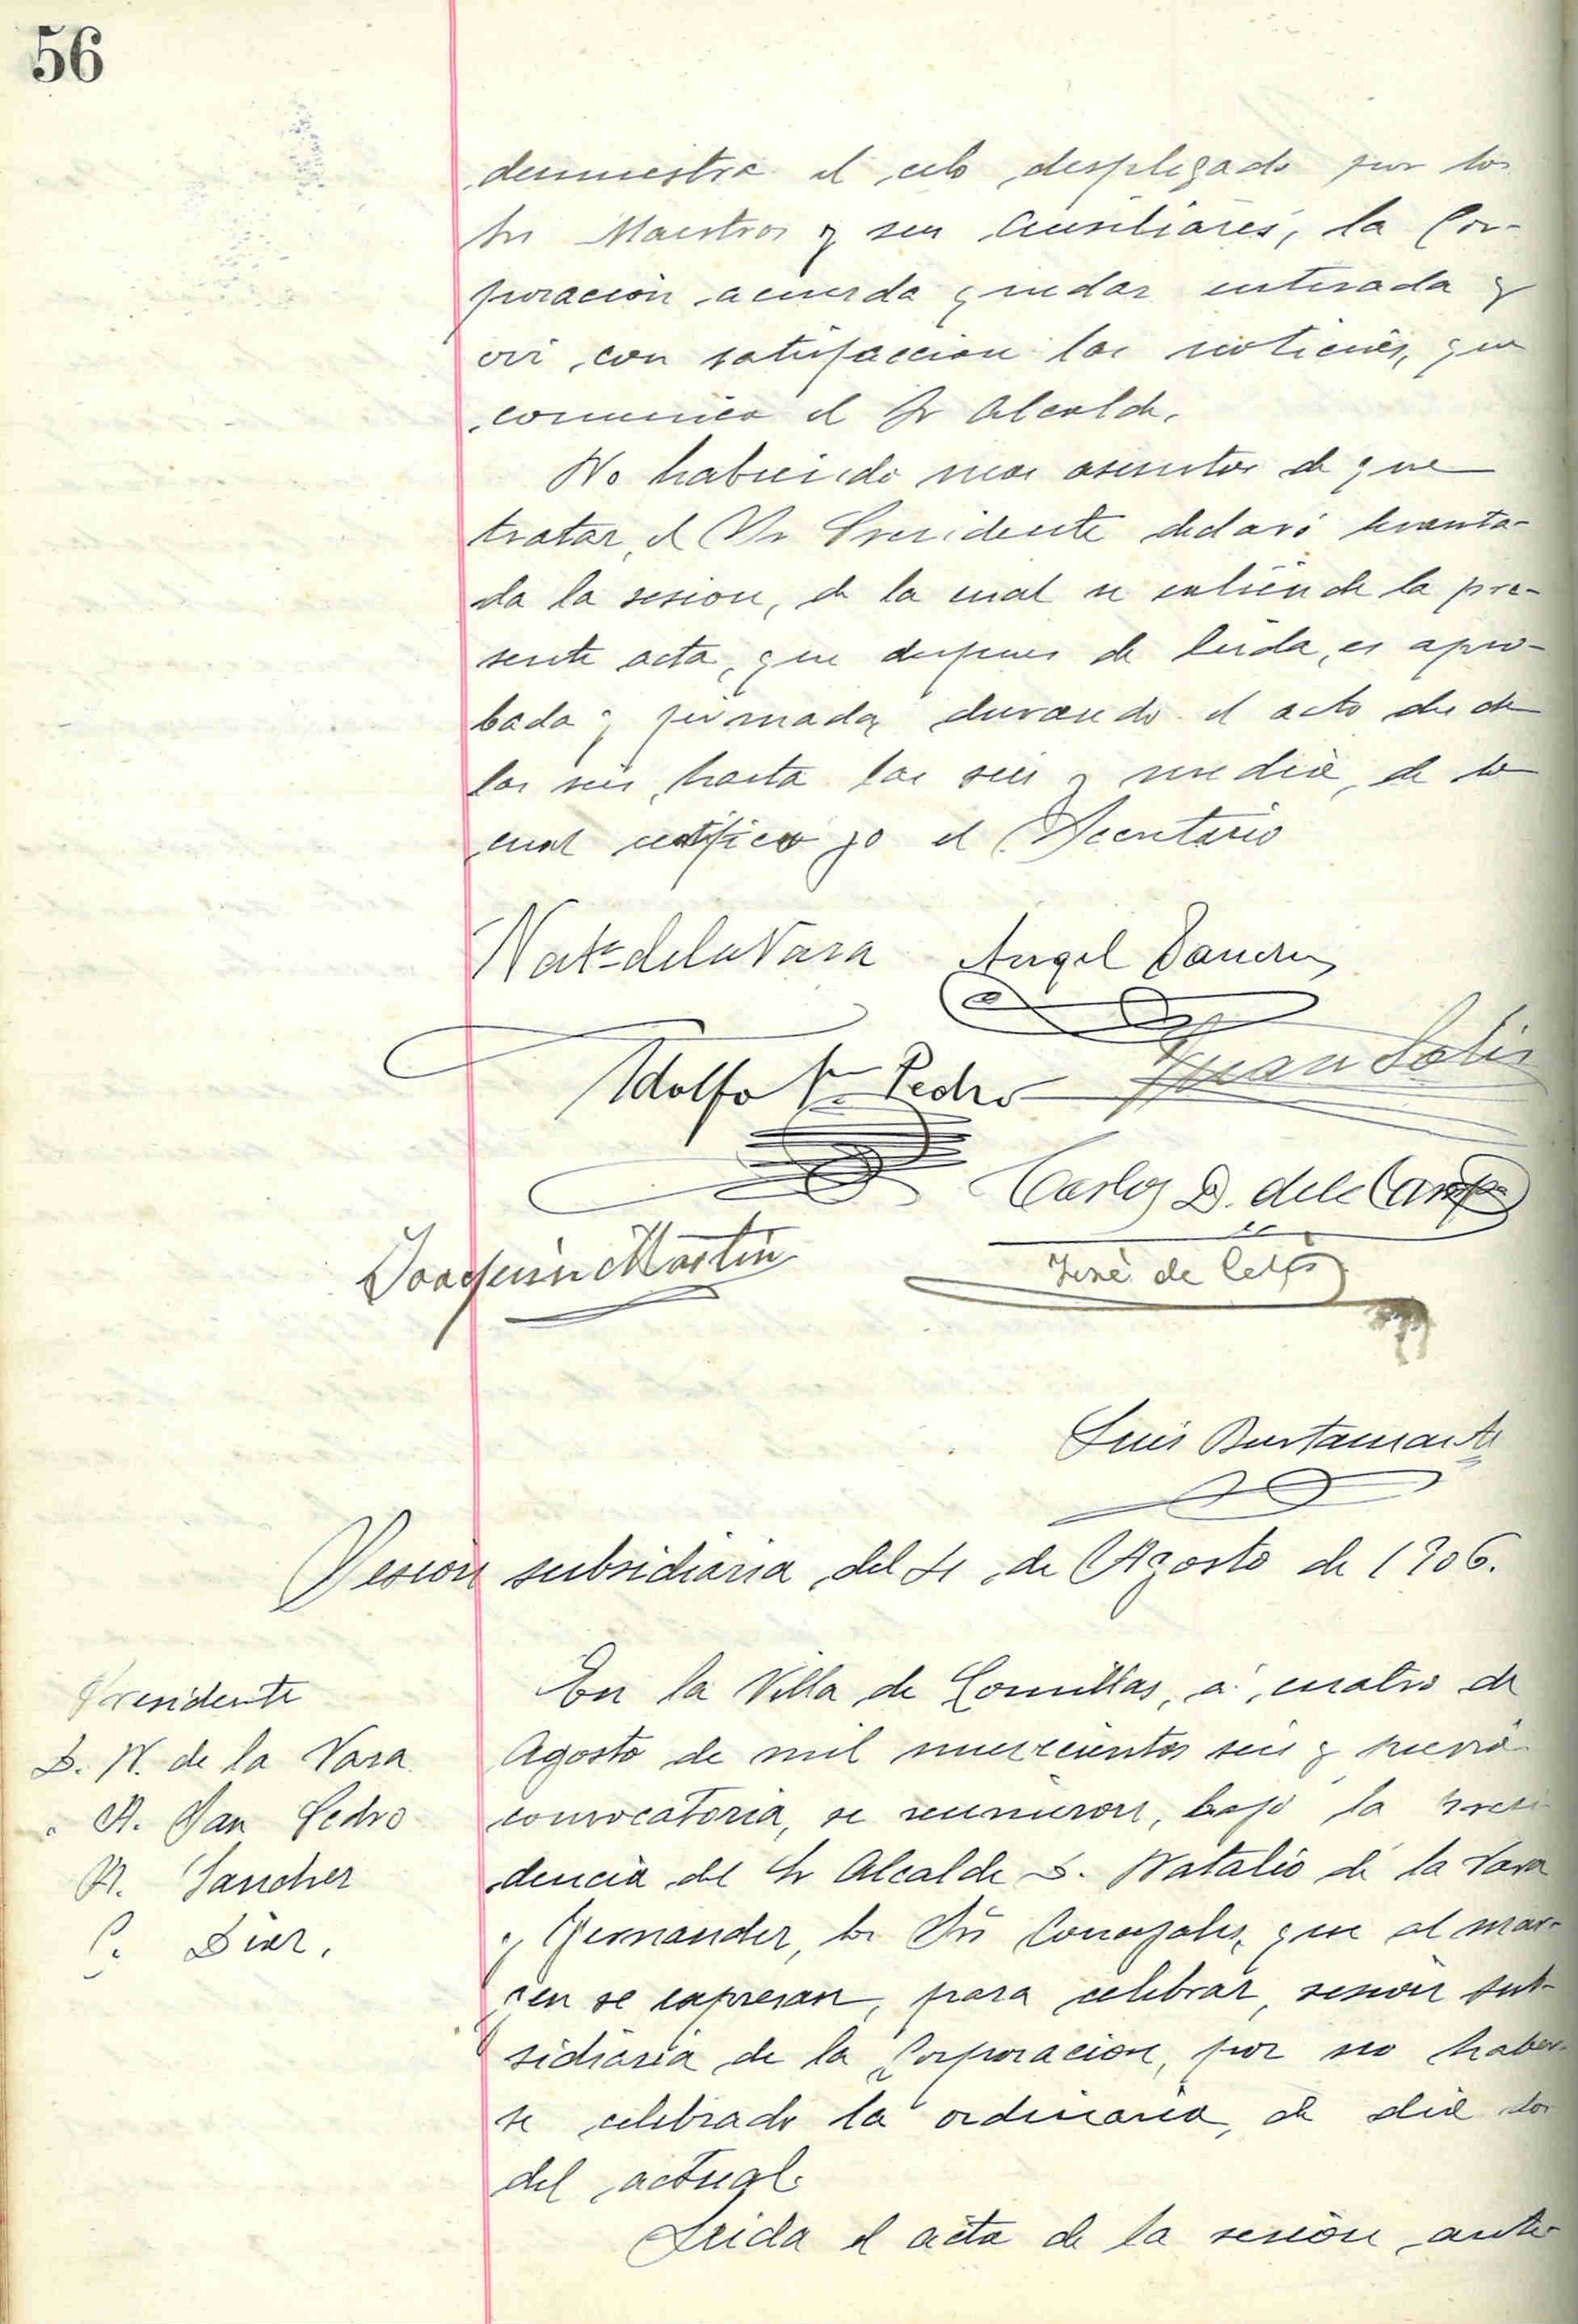 56
demuestra el celo desplegado por los
Srs Maestros y sus Auxiliares, la Cor-
poración acuerda quedar enterada y
oir con satisfaccion las noticias, que
comunica el Sr Alcalde.
No habiendo mas asuntos de que
tratar, el Sr Presidente declaró levanta-
da la sesion, de la cual se extiende la pre-
sente acta, que despues de leida, es apro-
bada y firmada, durando el acto desde
las seis, hasta las seis y media, de lo
cual certifico yo el Secretario
Nat.º de la Vara Angel Sanchez
Adolfo Sn Pedro Juan Solis
Carlos D. de la Campa
Joaquin Martin José de Celis
Luis Bustamante
Sesión subsidiaria del 4 de Agosto de 1906.
Presidente
D. N. de la Vara
" A. San Pedro
A. Sanchez
C. Diaz.
En la Villa de Comillas, á cuatro de
Agosto de mil novecientos seis y previa
convocatoria, se reunieron, bajo la presi-
dencia del Sr Alcalde D. Natalio de la Vara
y Fernandez, los Srs Concejales, que al mar-
gen se expresan, para celebrar sesion sub-
sidiaria de la Corporacion, por no haber-
se celebrado la ordinaria, de dia dos
del actual.
Leida el acta de la sesión ante-